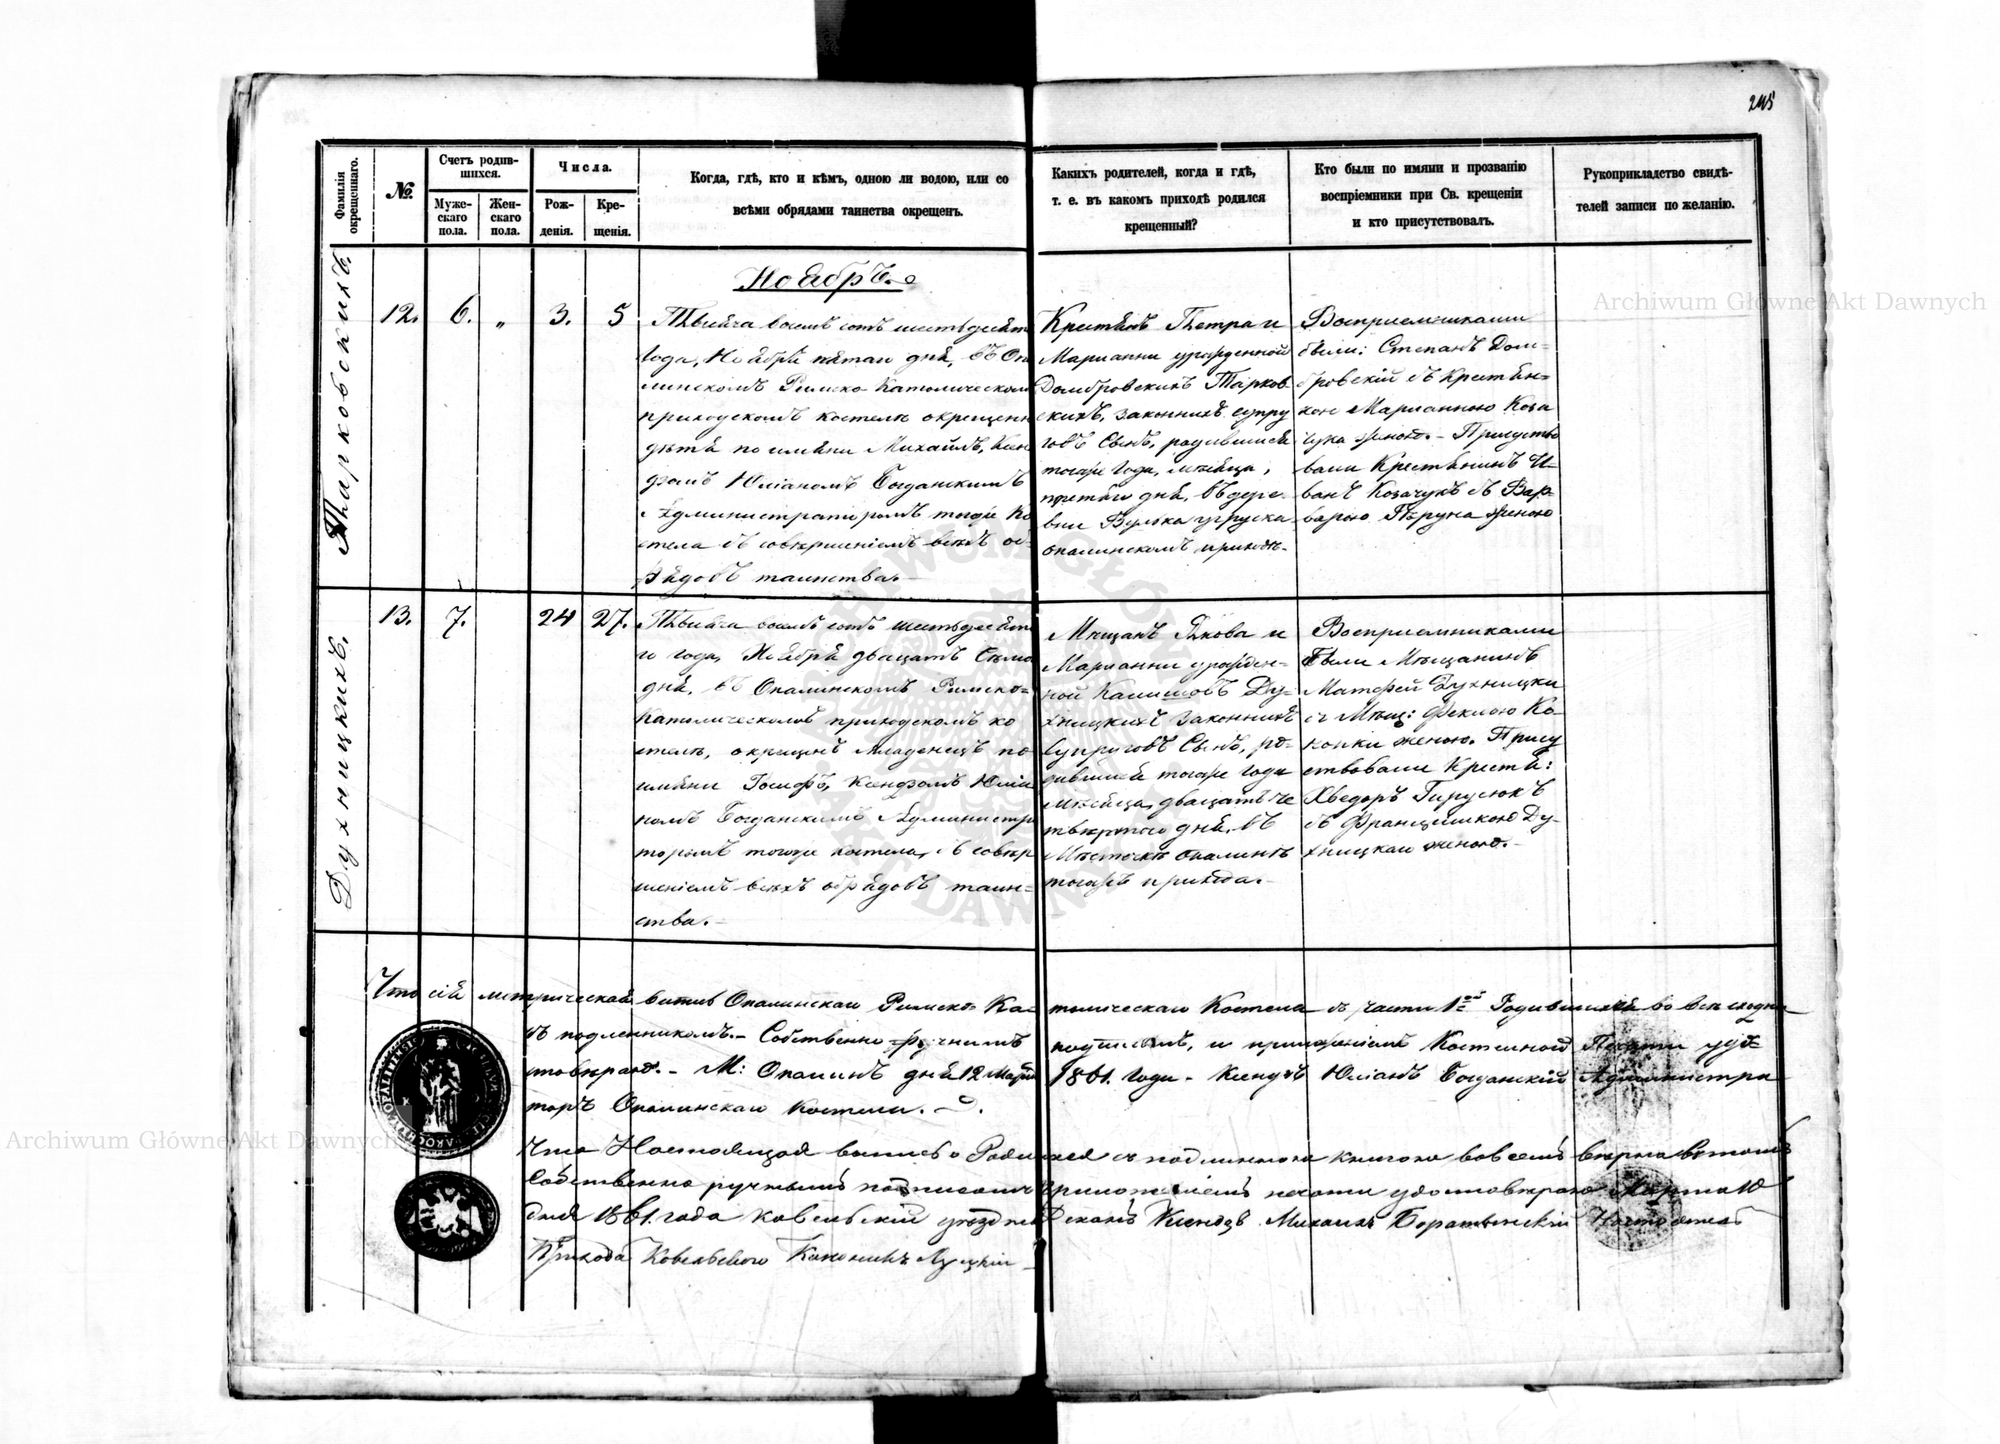 245
Фамилія окрещеннаго.
№.
Счетъ родив-
шихся.
Муже-
скаго
пола.
Жен-
скаго
пола.
Числа.
Рож-
денія.
Кре-
щенія.
Когда, гдѣ, кто и кѣмъ, одною ли водою, или со
всѣми обрядами таинства окрещенъ.
Какихъ родителей, когда и гдѣ,
т. е. въ какомъ приходѣ родился
крещенный?
Кто были по имяни и прозванію
воспріемники при Св. крещеніи
и кто присутствовалъ.
Рукоприкладство свидѣ-
телей записи по желанію.
Тарковскихъ.
12.
6.
„
3.
5
Ноябрь.
Тысяча восемь сотъ шестьдесят
года, Ноября пятаго дня, въ Опа
линскомъ Римско-Католическом
приходскомъ костелѣ окрещен
дитя по имяни Михаилъ, Ксен
дзомъ Юліаномъ Богданскимъ
Администраторомъ тогоже ко
стела съ совершеніемъ всѣхъ об
рядовъ таинства.
Крестьянъ Петра и
Марианни урожденной
Домбровскихъ Тарков
скихъ, законныхъ супру
говъ Сынъ, родившійся
тогоже года, мѣсяца,
третяго дня, въ дере-
вни Вулька угруска
опалинскомъ приходѣ.
Восприемниками
были: Степанъ Дом-
бровскій съ Крестьян-
кою Марианною Коза
чука женою. Присутство
вали Крестьянинъ И-
ванъ Козачукъ съ Вар-
варою женою
Духницкихъ.
13.
7.
24
27.
Тысяча восемь сотъ шестьдесят
го года, Ноября двацать седмо
дня, въ Опалинскомъ Римско-
Католическомъ приходскомъ ко
стелѣ, окрещенъ младенецъ по
имяни Іосифъ, Ксендзомъ Юліа
номъ Богданскимъ Администра
торомъ тогоже костела, съ совер
шеніемъ всѣхъ обрядовъ таин-
ства.
Мѣщанъ Якова и
Марианни урожден-
ной Ду-
хницкихъ законныхъ
Супруговъ Сынъ, ро-
дившійся тогоже года
Мѣсяца, двацать че
твертого дня, въ
Мѣсточкѣ Опалинѣ
тогожъ прихода.
Восприемниками
были Мѣщанинъ
Матфей Духницки
съ Мѣщ: Феклою Ко-
женою. Прису
ствовали Крестья:
Хведоръ Гирусюкъ
съ Францишкою Ду-
хницкаи женою.
Что сія метрическая выпись Опалинскаи Римско-Ка
толическаго Костела въ части 1ой Родившихся во всѣмъ сходна
съ подлинникомъ. Собственно ручнымъ
подписомъ, и приложеніемъ Костелной Печати удо
стоверяю. М: Опалинъ дня 12 Марта
1861. года. Ксендзъ Юліанъ Богданскій Администра
торъ Опалинскаи Костела.
Что Настоящая выпись о Родившихся съ подлинною книгою вовсемъ вѣрна въ томъ
Собственно ручнымъ подписомъ приложеніемъ печати удостоверяю Марта
дня 1861. года Ковельскій уездный Деканъ Ксендзъ Михаилъ Настоятель
Прихода Ковельского Каноникъ Луцкій
Archiwum Główne Akt Dawnych
Archiwum Główne Akt Dawnych